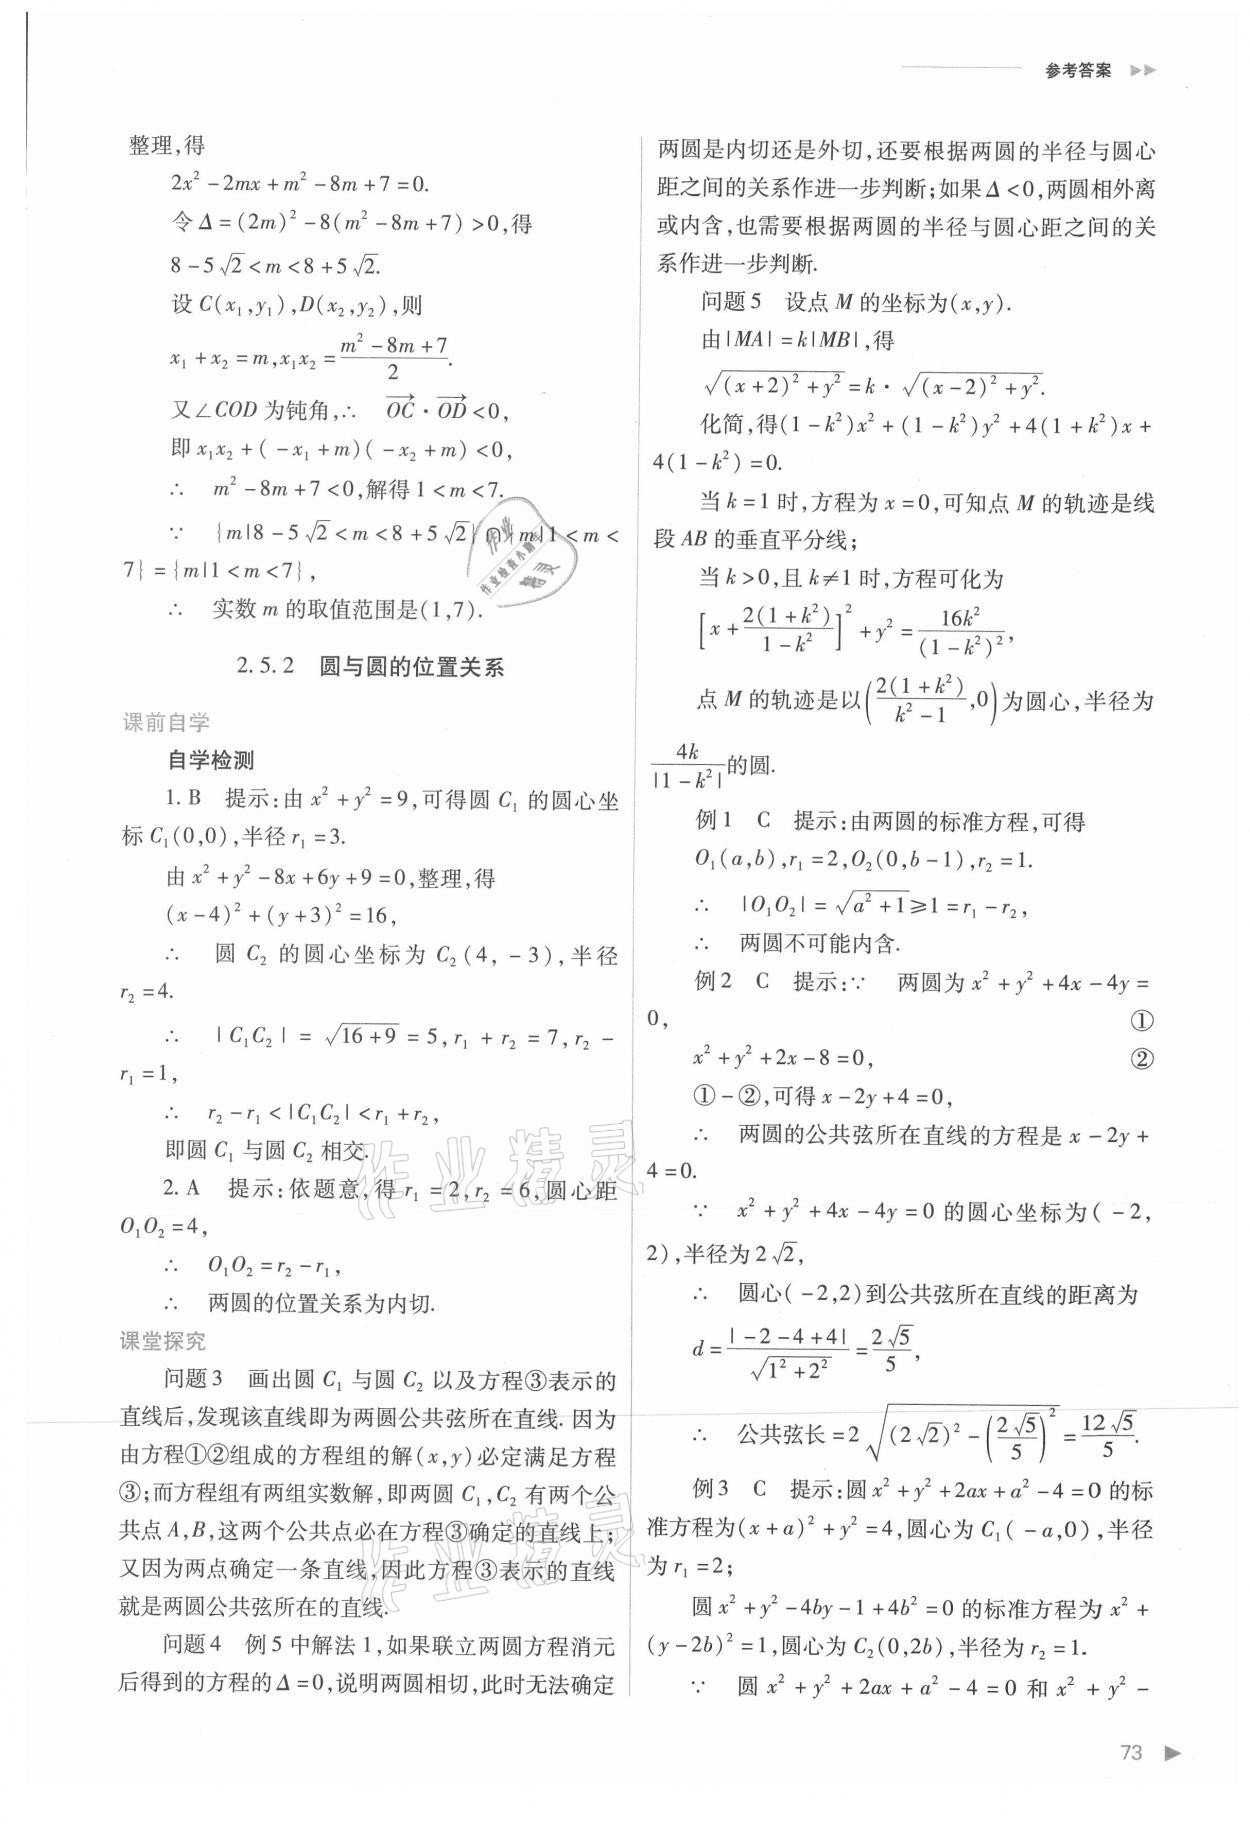 参考答案
整理,得
2x² - 2mx + m² - 8m + 7 = 0.
令 Δ = (2m)² - 8(m² - 8m + 7) > 0,得
8 - 5√2 < m < 8 + 5√2.
设 C(x₁,y₁),D(x₂,y₂),则
x₁ + x₂ = m,x₁x₂ = (m² - 8m + 7)/2.
又∠COD 为钝角,∴ OC→ · OD→ < 0,
即 x₁x₂ + ( - x₁ + m)( - x₂ + m) < 0,
∴ m² - 8m + 7 < 0,解得 1 < m < 7.
∵ {m|8 - 5√2 < m < 8 + 5√2} ∩ {m|1 < m <
7} = {m|1 < m < 7},
∴ 实数 m 的取值范围是(1,7).
2.5.2 圆与圆的位置关系
课前自学
自学检测
1. B 提示:由 x² + y² = 9,可得圆 C₁ 的圆心坐
标 C₁(0,0),半径 r₁ = 3.
由 x² + y² - 8x + 6y + 9 = 0,整理,得
(x - 4)² + (y + 3)² = 16,
∴ 圆 C₂ 的圆心坐标为 C₂(4, - 3),半径
r₂ = 4.
∴ |C₁C₂| = √(16 + 9) = 5,r₁ + r₂ = 7,r₂ -
r₁ = 1,
∴ r₂ - r₁ < |C₁C₂| < r₁ + r₂,
即圆 C₁ 与圆 C₂ 相交.
2. A 提示:依题意,得 r₁ = 2,r₂ = 6,圆心距
O₁O₂ = 4,
∴ O₁O₂ = r₂ - r₁,
∴ 两圆的位置关系为内切.
课堂探究
问题 3 画出圆 C₁ 与圆 C₂ 以及方程③表示的
直线后,发现该直线即为两圆公共弦所在直线. 因为
由方程①②组成的方程组的解(x,y)必定满足方程
③;而方程组有两组实数解,即两圆 C₁,C₂ 有两个公
共点 A,B,这两个公共点必在方程③确定的直线上;
又因为两点确定一条直线,因此方程③表示的直线
就是两圆公共弦所在的直线.
问题 4 例 5 中解法 1,如果联立两圆方程消元
后得到的方程的 Δ = 0,说明两圆相切,此时无法确定
两圆是内切还是外切,还要根据两圆的半径与圆心
距之间的关系作进一步判断;如果 Δ < 0,两圆相外离
或内含,也需要根据两圆的半径与圆心距之间的关
系作进一步判断.
问题 5 设点 M 的坐标为(x,y).
由|MA| = k|MB|,得
√((x + 2)² + y²) = k · √((x - 2)² + y²).
化简,得(1 - k²)x² + (1 - k²)y² + 4(1 + k²)x +
4(1 - k²) = 0.
当 k = 1 时,方程为 x = 0,可知点 M 的轨迹是线
段 AB 的垂直平分线;
当 k > 0,且 k ≠ 1 时,方程可化为
[x + 2(1 + k²)/(1 - k²)]² + y² = 16k²/(1 - k²)²,
点 M 的轨迹是以(2(1 + k²)/(k² - 1),0)为圆心,半径为
4k/|1 - k²|的圆.
例 1 C 提示:由两圆的标准方程,可得
O₁(a,b),r₁ = 2,O₂(0,b - 1),r₂ = 1.
∴ |O₁O₂| = √(a² + 1) ⩾ 1 = r₁ - r₂,
∴ 两圆不可能内含.
例 2 C 提示:∵ 两圆为 x² + y² + 4x - 4y =
0, ①
x² + y² + 2x - 8 = 0, ②
① - ②,可得 x - 2y + 4 = 0,
∴ 两圆的公共弦所在直线的方程是 x - 2y +
4 = 0.
∵ x² + y² + 4x - 4y = 0 的圆心坐标为( - 2,
2),半径为 2√2,
∴ 圆心( - 2,2)到公共弦所在直线的距离为
d = | - 2 - 4 + 4|/√(1² + 2²) = 2√5/5,
∴ 公共弦长 = 2√((2√2)² - (2√5/5)²) = 12√5/5.
例 3 C 提示:圆 x² + y² + 2ax + a² - 4 = 0 的标
准方程为(x + a)² + y² = 4,圆心为 C₁( - a,0),半径
为 r₁ = 2;
圆 x² + y² - 4by - 1 + 4b² = 0 的标准方程为 x² +
(y - 2b)² = 1,圆心为 C₂(0,2b),半径为 r₂ = 1.
∵ 圆 x² + y² + 2ax + a² - 4 = 0 和 x² + y² -
73
作业
作业检查小助手
精灵
作业精灵
作业精灵